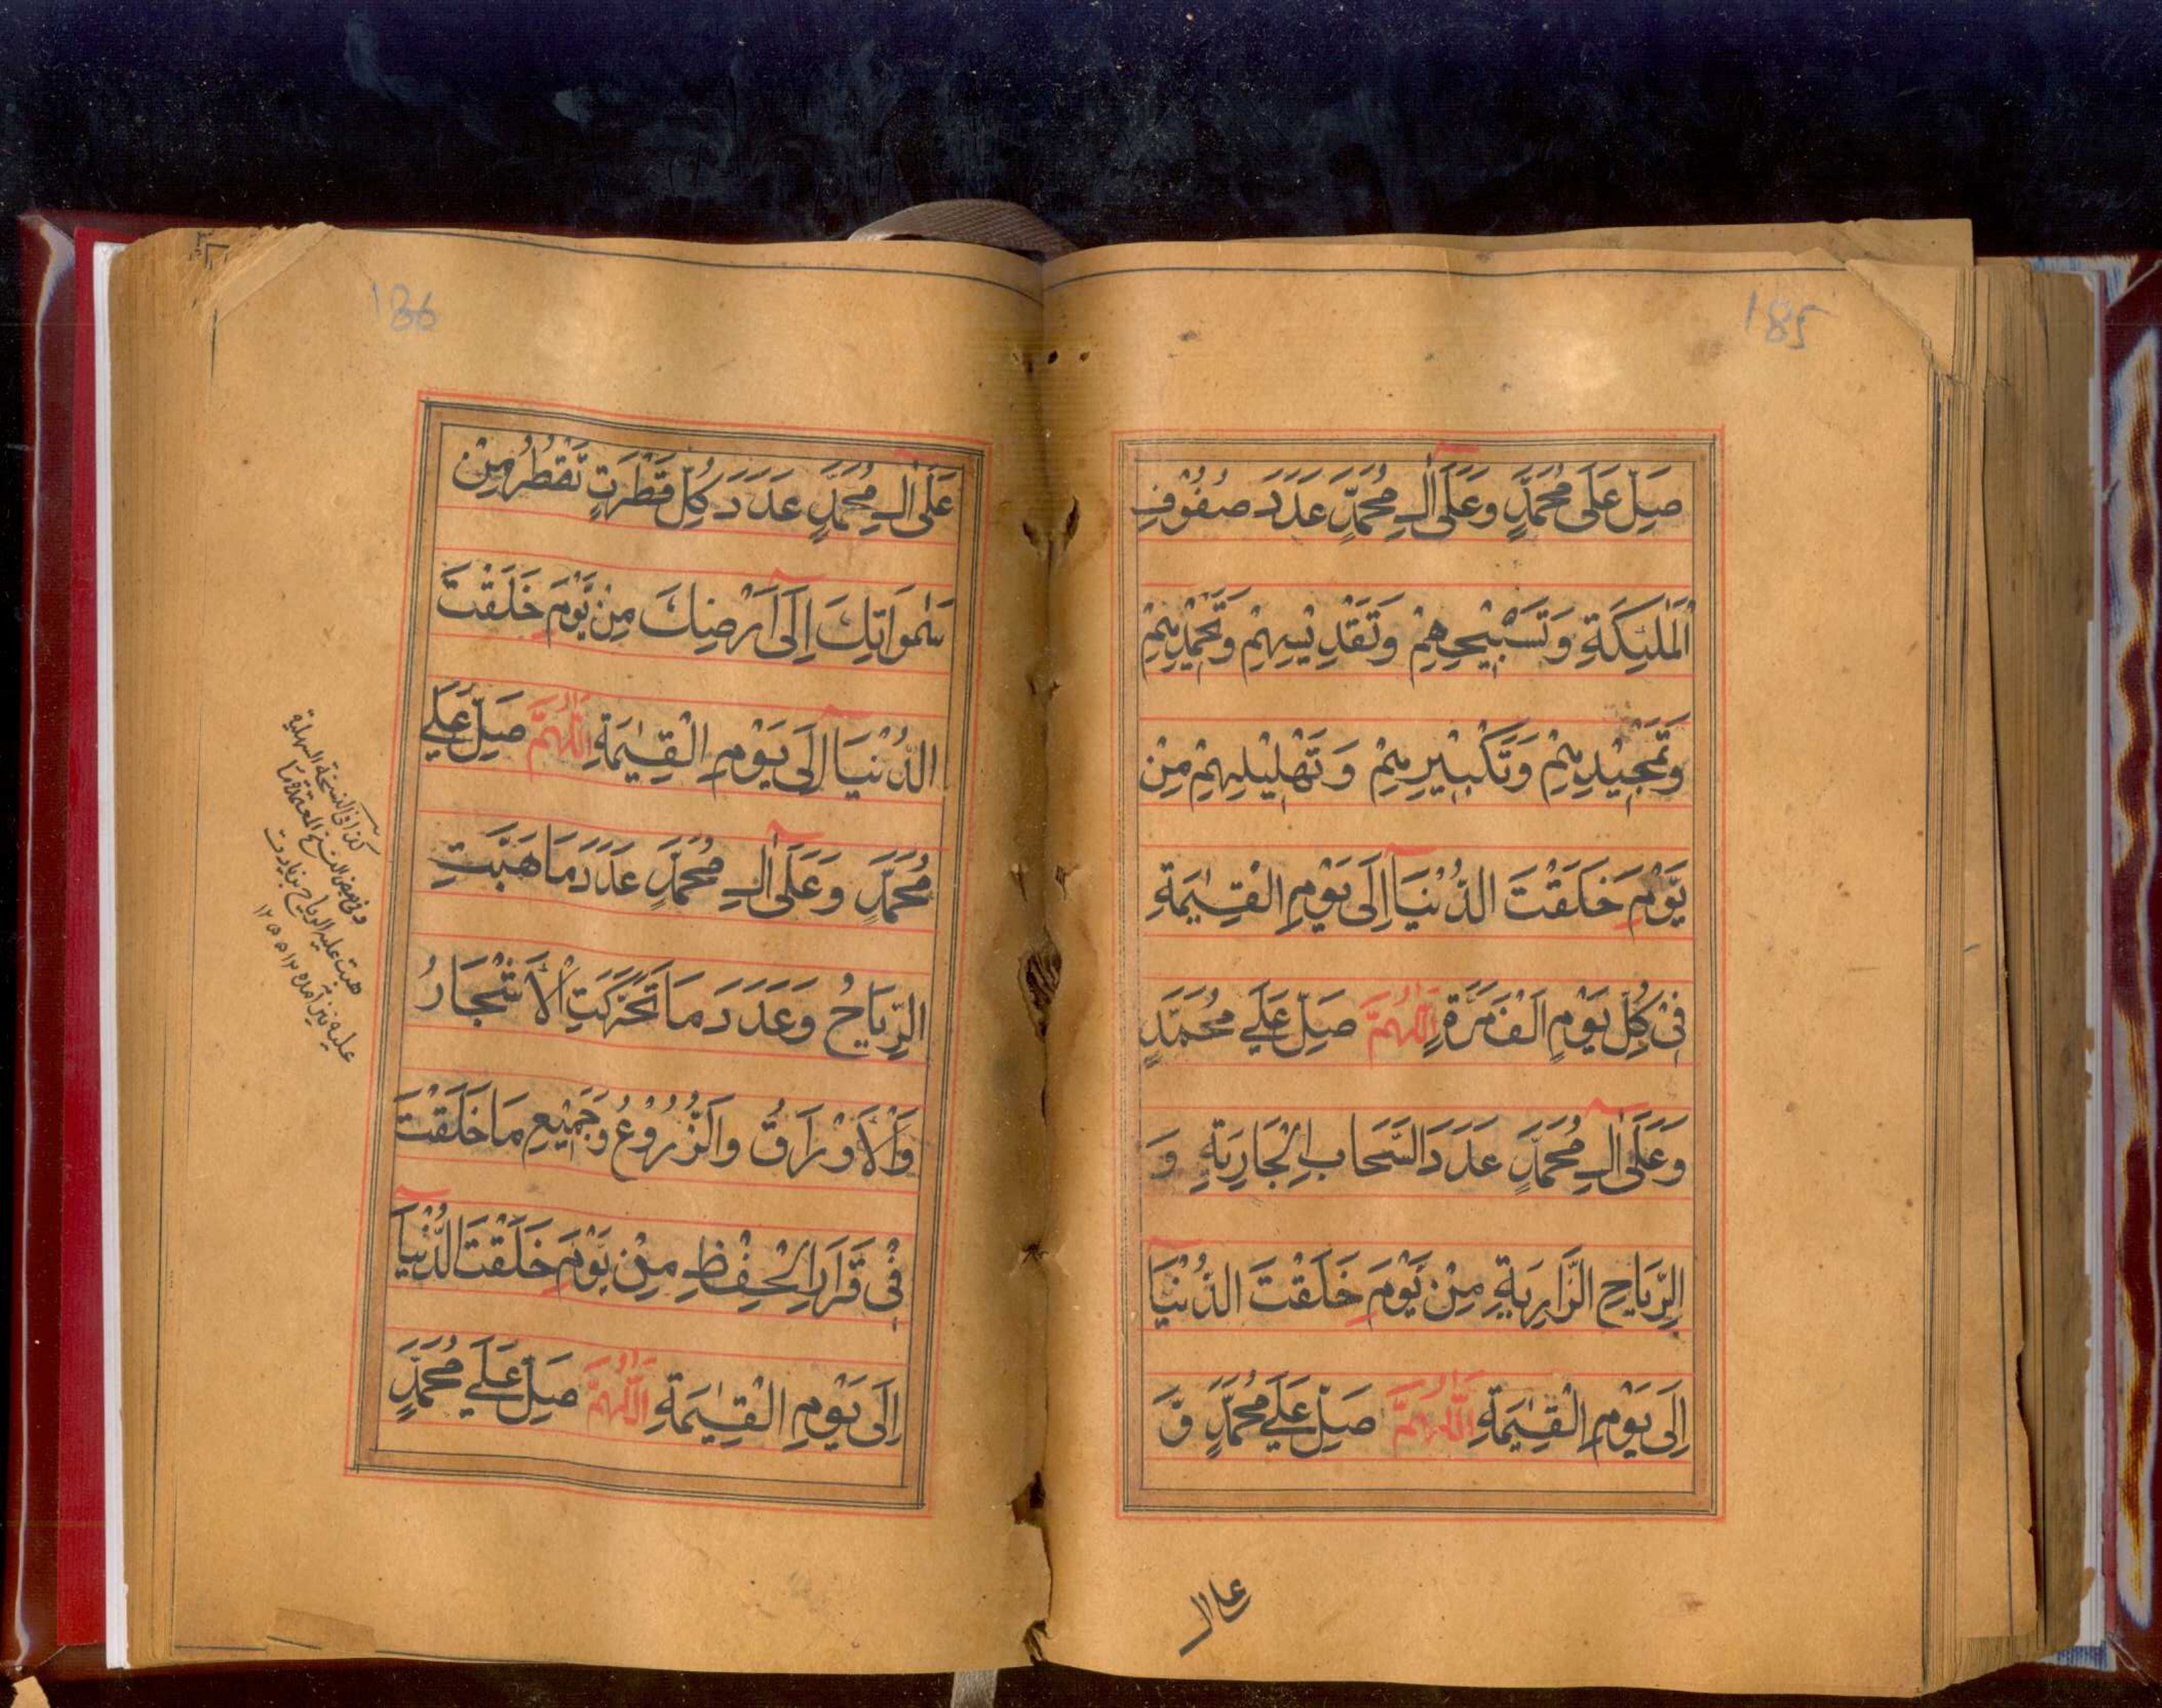 185
صَلِّ عَلَى مُحَمَّدٍ وَعَلَىٰ اٰلِ مُحَمَّدٍ عَدَدَ صُفُوْفِ
الْمَلٰئِكَةِ وَتَسْبِيْحِهِمْ وَتَقْدِيْسِهِمْ وَتَحْمِيْدِهِمْ
وَتَمْجِيْدِهِمْ وَتَكْبِيْرِهِمْ وَتَهْلِيْلِهِمْ مِنْ
يَّوْمِ خَلَقْتَ الدُّنْيَا اِلَى يَوْمِ الْقِيٰمَةِ
فِىْ كُلِّ يَوْمٍ اَلْفَ مَرَّةٍ اَللّٰهُمَّ صَلِّ عَلٰى مُحَمَّدٍ
وَعَلَىٰ اٰلِ مُحَمَّدٍ عَدَدَ السَّحَابِ الْجَارِيَةِ وَ
الرِّيَاحِ الذَّارِيَةِ مِنْ يَّوْمِ خَلَقْتَ الدُّنْيَا
اِلَى يَوْمِ الْقِيٰمَةِ اَللّٰهُمَّ صَلِّ عَلٰى مُحَمَّدٍ وَّ
على ال
186
عَلَىٰ اٰلِ مُحَمَّدٍ عَدَدَ كُلِّ قَطْرَةٍ تَقْطُرُ مِنْ
سَمٰوَاتِكَ اِلَى اَرْضِكَ مِنْ يَّوْمِ خَلَقْتَ
الدُّنْيَا اِلَى يَوْمِ الْقِيٰمَةِ اَللّٰهُمَّ صَلِّ عَلٰى
مُحَمَّدٍ وَعَلَىٰ اٰلِ مُحَمَّدٍ عَدَدَ مَا هَبَّتِ
الرِّيَاحُ وَعَدَدَ مَا تَحَرَّكَتِ الْاَشْجَارُ
وَالْاَوْرَاقُ وَالزُّرُوْعُ وَجَمِيْعِ مَا خَلَقْتَ
فِىْ قَرَارِ الْحِفْظِ مِنْ يَّوْمِ خَلَقْتَ الدُّنْيَا
اِلَى يَوْمِ الْقِيٰمَةِ اَللّٰهُمَّ صَلِّ عَلٰى مُحَمَّدٍ
كذا فى النسخة السهلية
وفى بعض النسخ المعتمدة ما
هبت عليه الرياح بزيادت
عليه نيز آمده ١٢